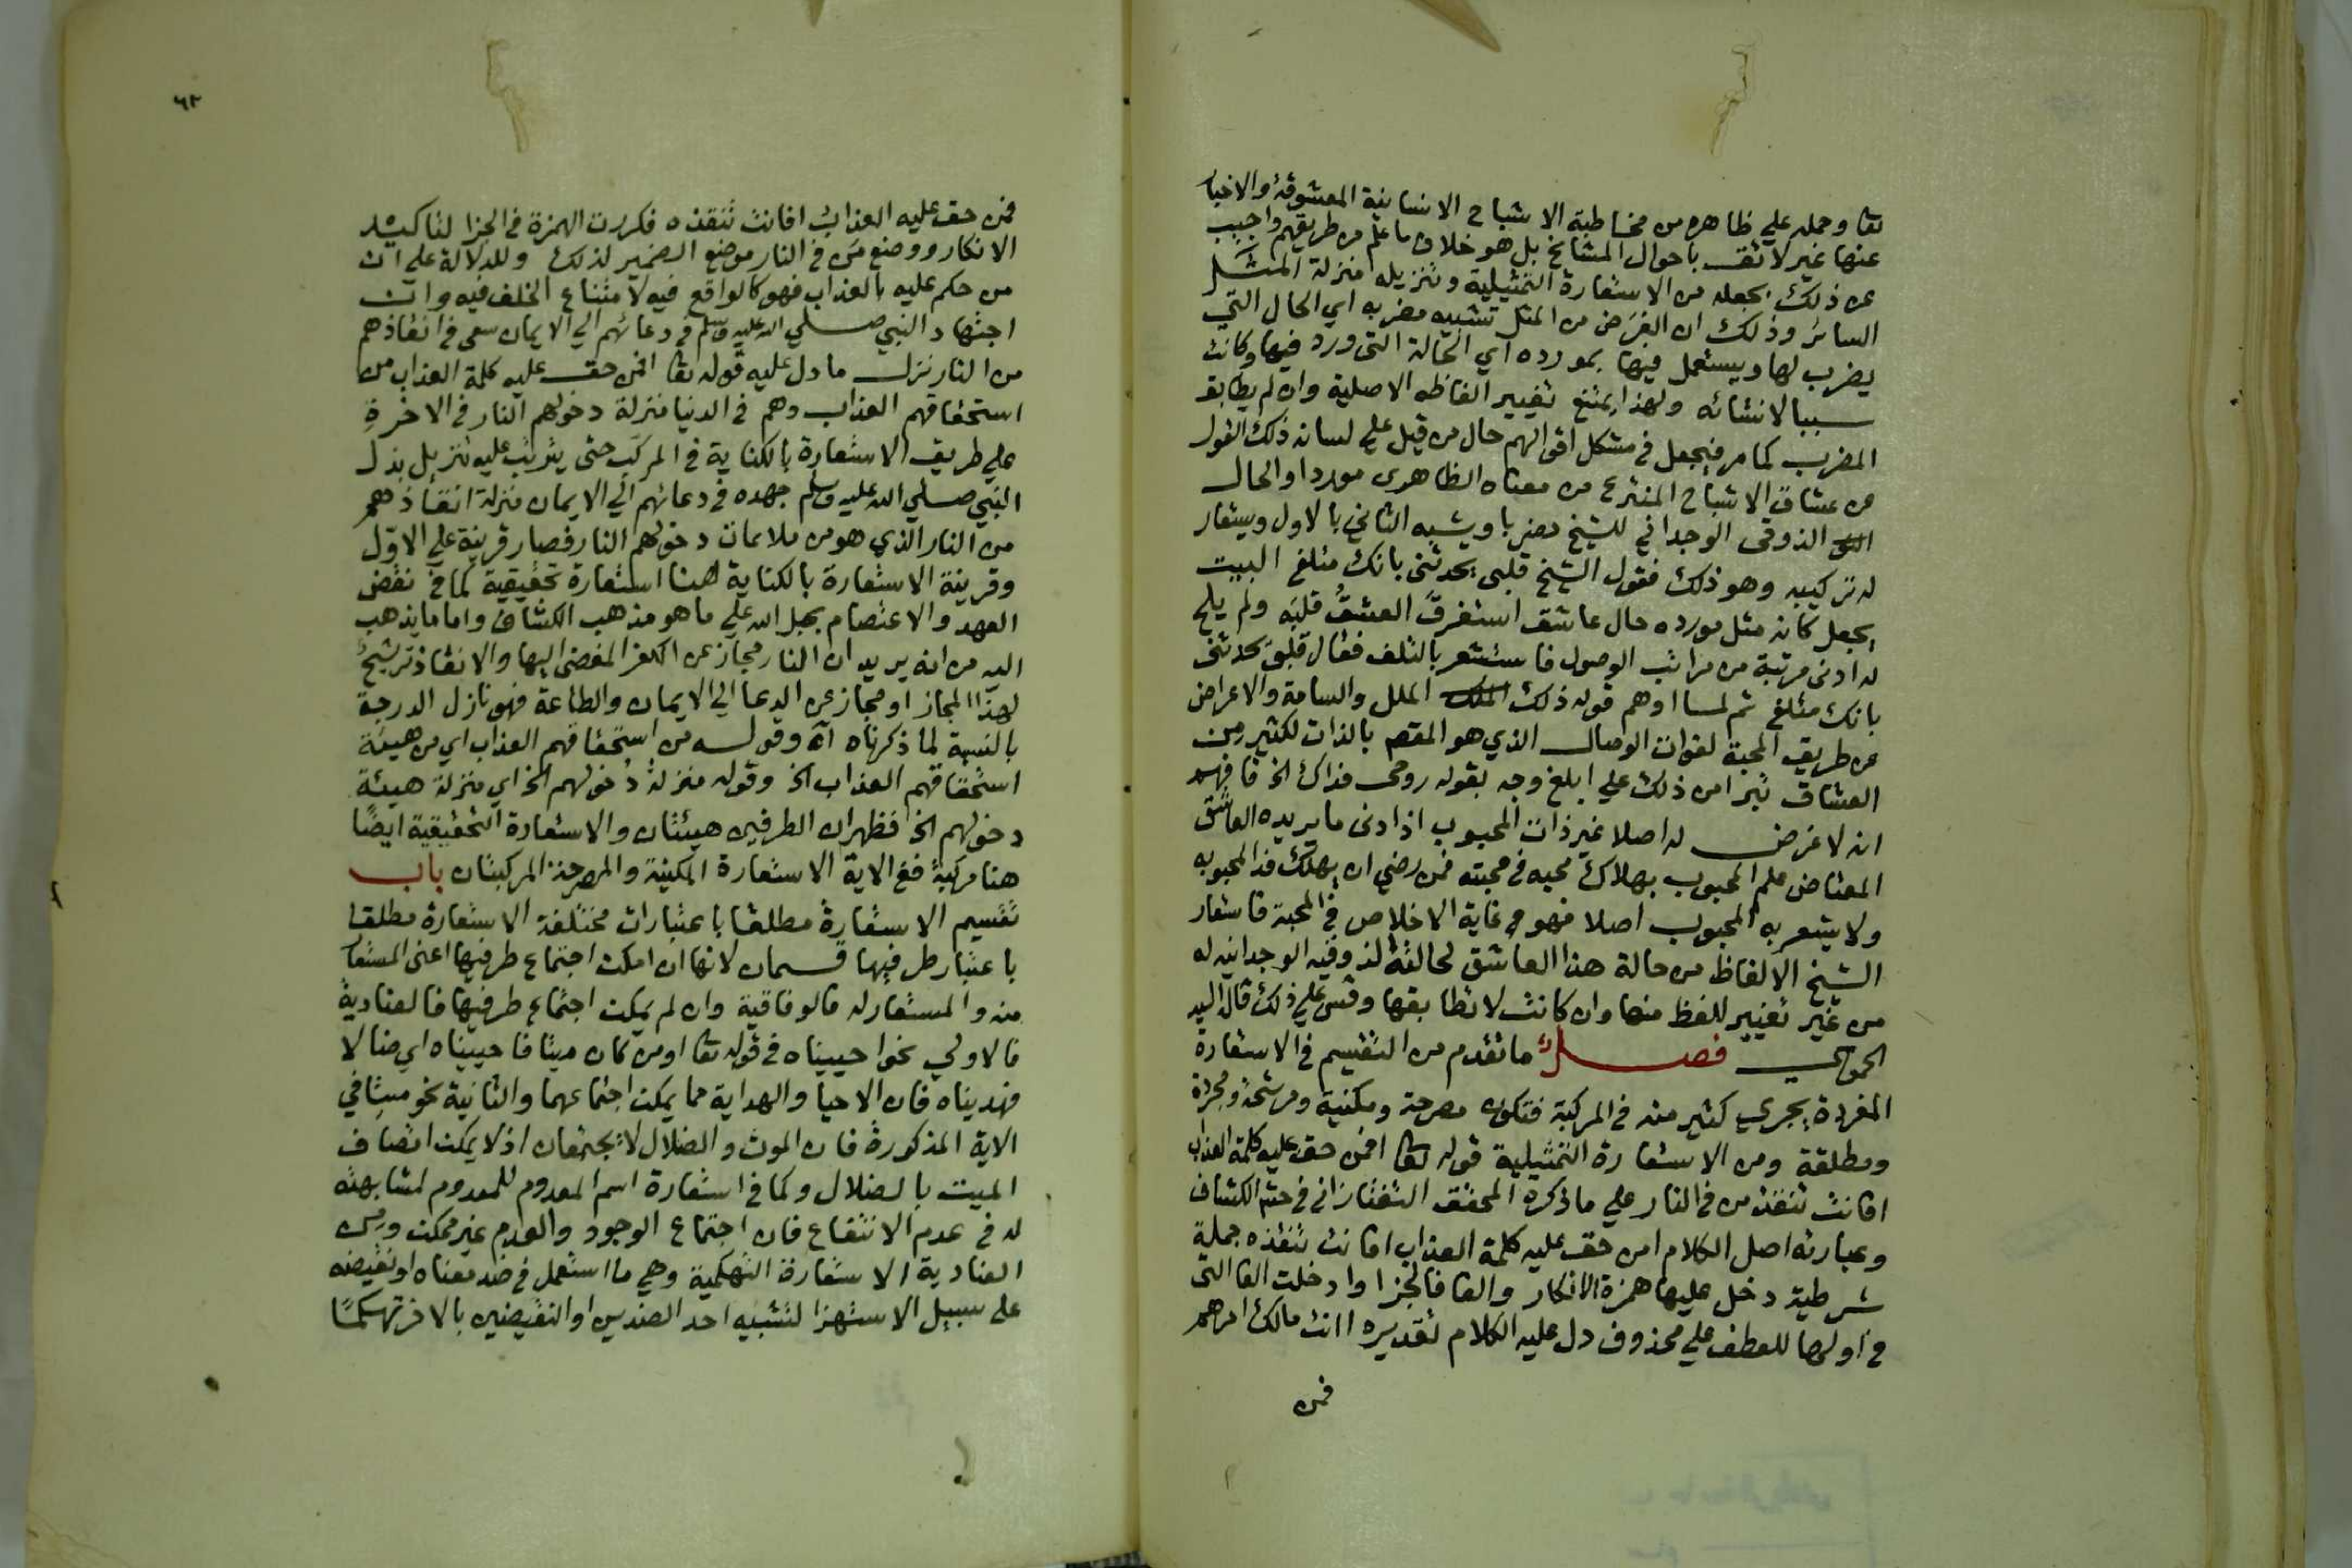 تعا وحمله علي ظاهره من مخاطبة الاشباح الانسانية المعشوقة والاخبار
عنها غير لائق باحوال المشايخ بل هو خلاف ما علم من طريقهم واجيب
عن ذلك بجعله من الاستعارة التمثيلية وتنزيله منزلة المثل
السائر وذلك ان الغرض من المثل تشبيه مضربه اي الحال التي
يضرب لها ويستعمل فيها بمورده اي الحالة التي ورد فيها وكانت
سببا لانشائه ولهذا يمتنع تغيير الفاظه الاصلية وان لم يطابق
المضرب كما مر فيجعل في مشكل اقوالهم حال من قيل علي لسانه ذلك القول
من عشاق الاشباح المنتزع من معناه الظاهرى موردا والحال
الذوقى الوجداني للشيخ مضربا ويشبه الثاني بالاول ويستعار
له تركيبه وهو ذلك فقول الشيخ قلبى يحدثنى بانك متلفي البيت
يجعل كانه مثل مورده حال عاشق استغرق العشق قلبه ولم يلح
له ادنى مرتبة من مراتب الوصول فاستشعر بالتلف فقال قلبى يحدثنى
بانك متلفي ثم لما اوهم قوله ذلك الملل والسامة والاعراض
عن طريق المحبة لفوات الوصال الذي هو المقصم بالذات لكثير من
العشاق تبرا من ذلك علي ابلغ وجه بقوله روحى فداك الخ فافهم
انه لا غرض له اصلا غير ذات المحبوب اذ ادنى ما يريده العاشق
المعتاض علم المحبوب بهلاك محبه في محبته فمن رضي ان يهلك فدا لمحبوبه
ولا يشعر به المحبوب اصلا فهو في غاية الاخلاص في المحبة فاستعار
الشيخ الالفاظ من حالة هذا العاشق لحالته الذوقيه الوجدانيه له
من غير تغيير للفظ منها وان كانت لا تطابقها وقس علي ذلك قاله السيد
الحموي فصل ما تقدم من التقسيم في الاستعارة
المفردة يجري كثير منه في المركبة فتكون مصرحة ومكنية ومرشحة ومجردة
ومطلقة ومن الاستعارة التمثيلية قوله تعا افمن حق عليه كلمة العذاب
افانت تنقذ من في النار علي ما ذكره المحقق التفتازاني في حشم الكشاف
وعبارته اصل الكلام امن حق عليه كلمة العذاب افانت تنقذه جملة
شرطية دخل عليها همزة الانكار والفا فا الجزا وادخلت الفا التى
في اولها للعطف علي محذوف دل عليه الكلام تقديره اانت مالك امرهم
فمن
٦٢
فمن حق عليه العذاب افانت تنقذه فكررت الهمزة في الجزا لتاكيد
الانكار ووضع من في النار موضع الضمير لذلك وللدلالة علي ان
من حكم عليه بالعذاب فهو كالواقع فيه لامتناع الخلف فيه وان
اجتهاد النبي صلي الله عليه وسلم في دعائهم الي الايمان سعى في انقاذهم
من النار نزل ما دل عليه قوله تعا افمن حق عليه كلمة العذاب من
استحقاقهم العذاب وهم في الدنيا منزلة دخولهم النار في الاخرة
علي طريق الاستعارة بالكناية في المركب حتى يترتب عليه تنزيل بذل
النبي صلي الله عليه وسلم جهده في دعائهم الي الايمان منزلة انقاذهم
من النار الذي هو من ملايمات دخولهم النار فصار قرينة علي الاول
وقرينة الاستعارة بالكناية هنا استعارة تحقيقية كما في نقض
العهد والاعتصام بحبل الله علي ما هو مذهب الكشاف واما ما يذهب
اليه من انه يريد ان النار مجاز عن الكفر المفضى اليها والانقاذ ترشيح
لهذا المجاز او مجاز عن الدعا الي الايمان والطاعة فهو نازل الدرجة
بالنسبة لما ذكرناه اه وقوله من استحقاقهم العذاب اي من هيئة
استحقاقهم العذاب الخ وقوله منزلة دخولهم الخ اي منزلة هيئة
دخولهم الخ فظهر ان الطرفين هيئتان والاستعارة التحقيقية ايضا
هنا مركبة ففي الاية الاستعارة المكنية والمصرحة المركبتان باب
تقسيم الاستعارة مطلقا باعتبارات مختلفة الاستعارة مطلقا
باعتبار طرفيها قسمان لانها ان امكن اجتماع طرفيها اعنى المستعار
منه والمستعار له فالوفاقية وان لم يمكن اجتماع طرفيها فالعنادية
فالاولي نحو احييناه في قوله تعا او من كان ميتا فاحييناه اي ضالا
فهديناه فان الاحيا والهداية مما يمكن اجتماعهما والثانية نحو ميتا في
الاية المذكورة فان الموت والضلال لا يجتمعان اذ لا يمكن اتصاف
الميت بالضلال وكما في استعارة اسم المعدوم للمعدوم لمشابهته
له في عدم الانتفاع فان اجتماع الوجود والعدم غير ممكن ومن
العنادية الاستعارة التهكمية وهي ما استعمل في ضد معناه او نقيضه
على سبيل الاستهزا لتشبيه احد الضدين او النقيضين بالاخر تهكما